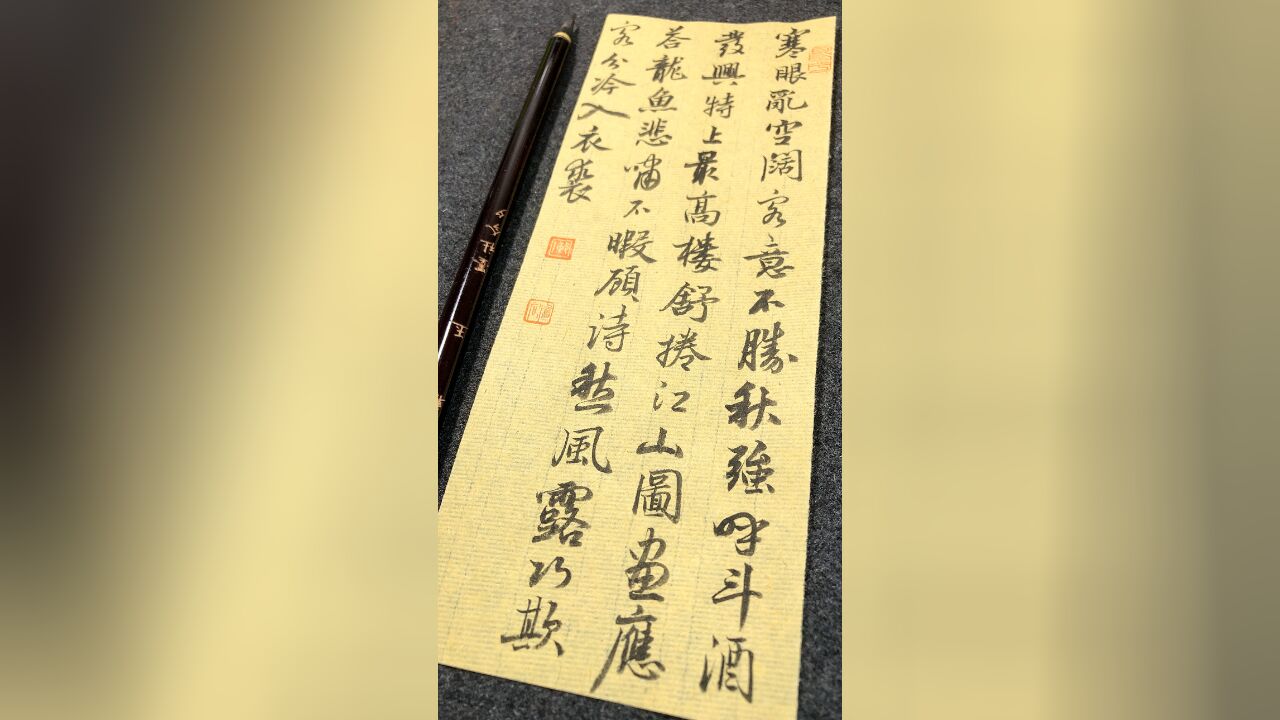 寒眼亂空闊客意不勝秋強呼斗酒
發興特上最高樓舒捲江山圖畫應
荅龍魚悲嘯不暇顧詩愁風露巧欺
客分冷入衣裘